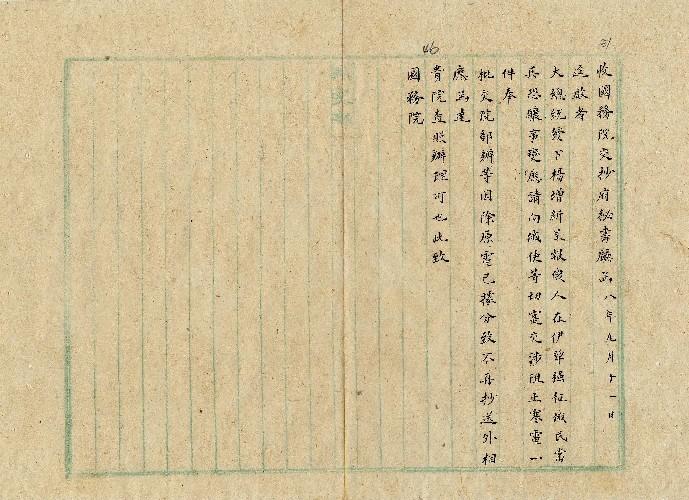 31
46
收國務院交抄府秘書廳函 八年九月十一日
逕啟者
大總統發下楊增新呈報俄人在伊犂強征俄民當
兵恐釀事變應請向俄使等切密交涉阻止寒電一
件奉
批交院部辦等因除原電已據分致不再抄送外相
應函達
貴院查照辦理可也此致
國務院